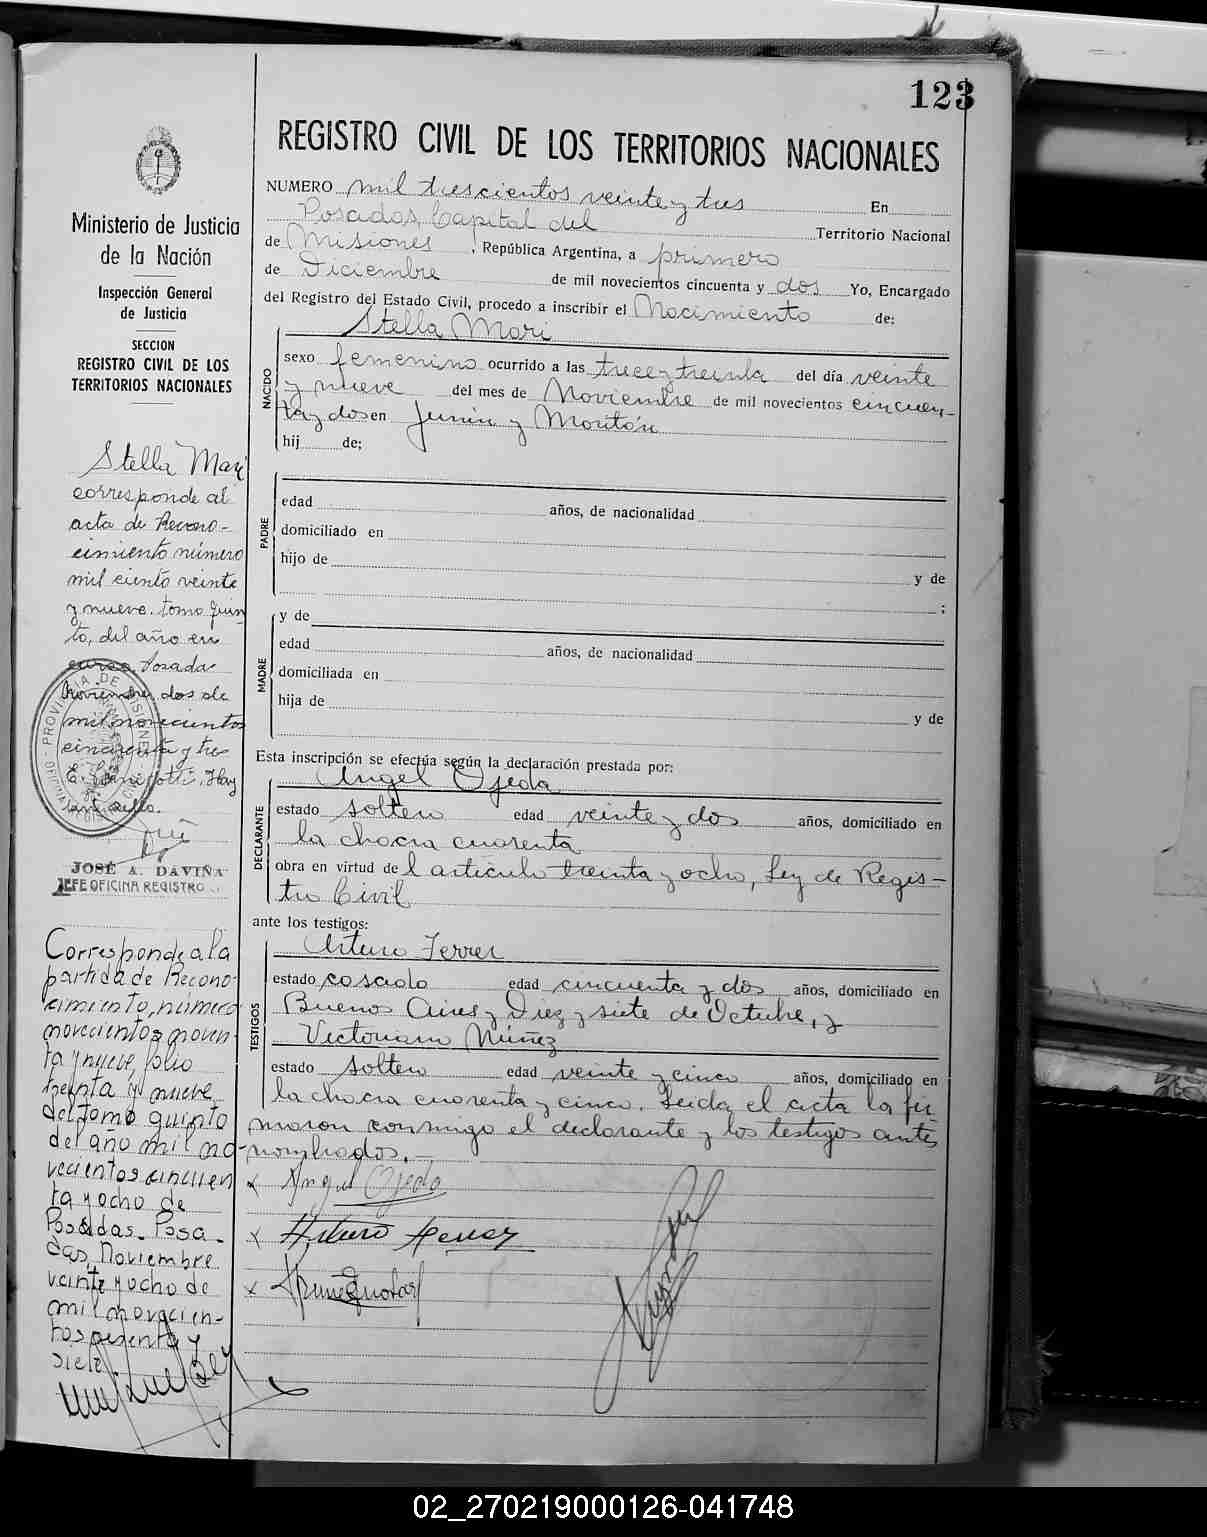 123
REGISTRO CIVIL DE LOS TERRITORIOS NACIONALES
NUMERO mil trescientos veinte y tres En
Posadas, Capital del Territorio Nacional
de Misiones, República Argentina, a primero
de Diciembre de mil novecientos cincuenta y dos Yo, Encargado
del Registro del Estado Civil, procedo a inscribir el Nacimiento de:
Stella Mari
NACIDO
sexo femenino ocurrido a las trece y treinta del día veinte
y nueve del mes de Noviembre de mil novecientos cincuen-
ta y dos en Junín y Montón
hij de;
PADRE
edad años, de nacionalidad
domiciliado en
hijo de y de
;
MADRE
y de
edad años, de nacionalidad
domiciliada en
hija de y de
Esta inscripción se efectúa según la declaración prestada por:
Angel Ojeda
DECLARANTE
estado soltero edad veinte y dos años, domiciliado en
la chacra cuarenta
obra en virtud de l artículo treinta y ocho, Ley de Regis-
tro Civil
ante los testigos:
Arturo Ferrer
TESTIGOS
estado casado edad cincuenta y dos años, domiciliado en
Buenos Aires y Diez y siete de Octubre, y
Victoriano Núñez
estado soltero edad veinte y cinco años, domiciliado en
la chacra cuarenta y cinco. Leida el acta la fir
maron conmigo el declarante y los testigos antes
nombrados.—
x Angel Ojeda
x Arturo Ferrer
x
Ministerio de Justicia
de la Nación
Inspección General
de Justicia
SECCION
REGISTRO CIVIL DE LOS
TERRITORIOS NACIONALES
Stella Mari
corresponde al
acta de Recono-
cimiento número
mil ciento veinte
y nueve. tomo quin
to, del año en
curso. Posadas
Noviembre dos de
mil novecientos
cincuenta y tres
PROVINCIA DE MISIONES
JOSÉ A. DAVIÑA
JEFE OFICINA REGISTRO
Corresponde a la
partida de Recono-
cimiento, número
novecientos noven-
ta y nueve, folio
treinta y nueve
del tomo quinto
del año mil no-
vecientos cincuen
ta y ocho de
Posadas. Posa-
das, Noviembre
veinte y ocho de
mil novecien-
tos sesenta y
siete.
02_270219000126-041748